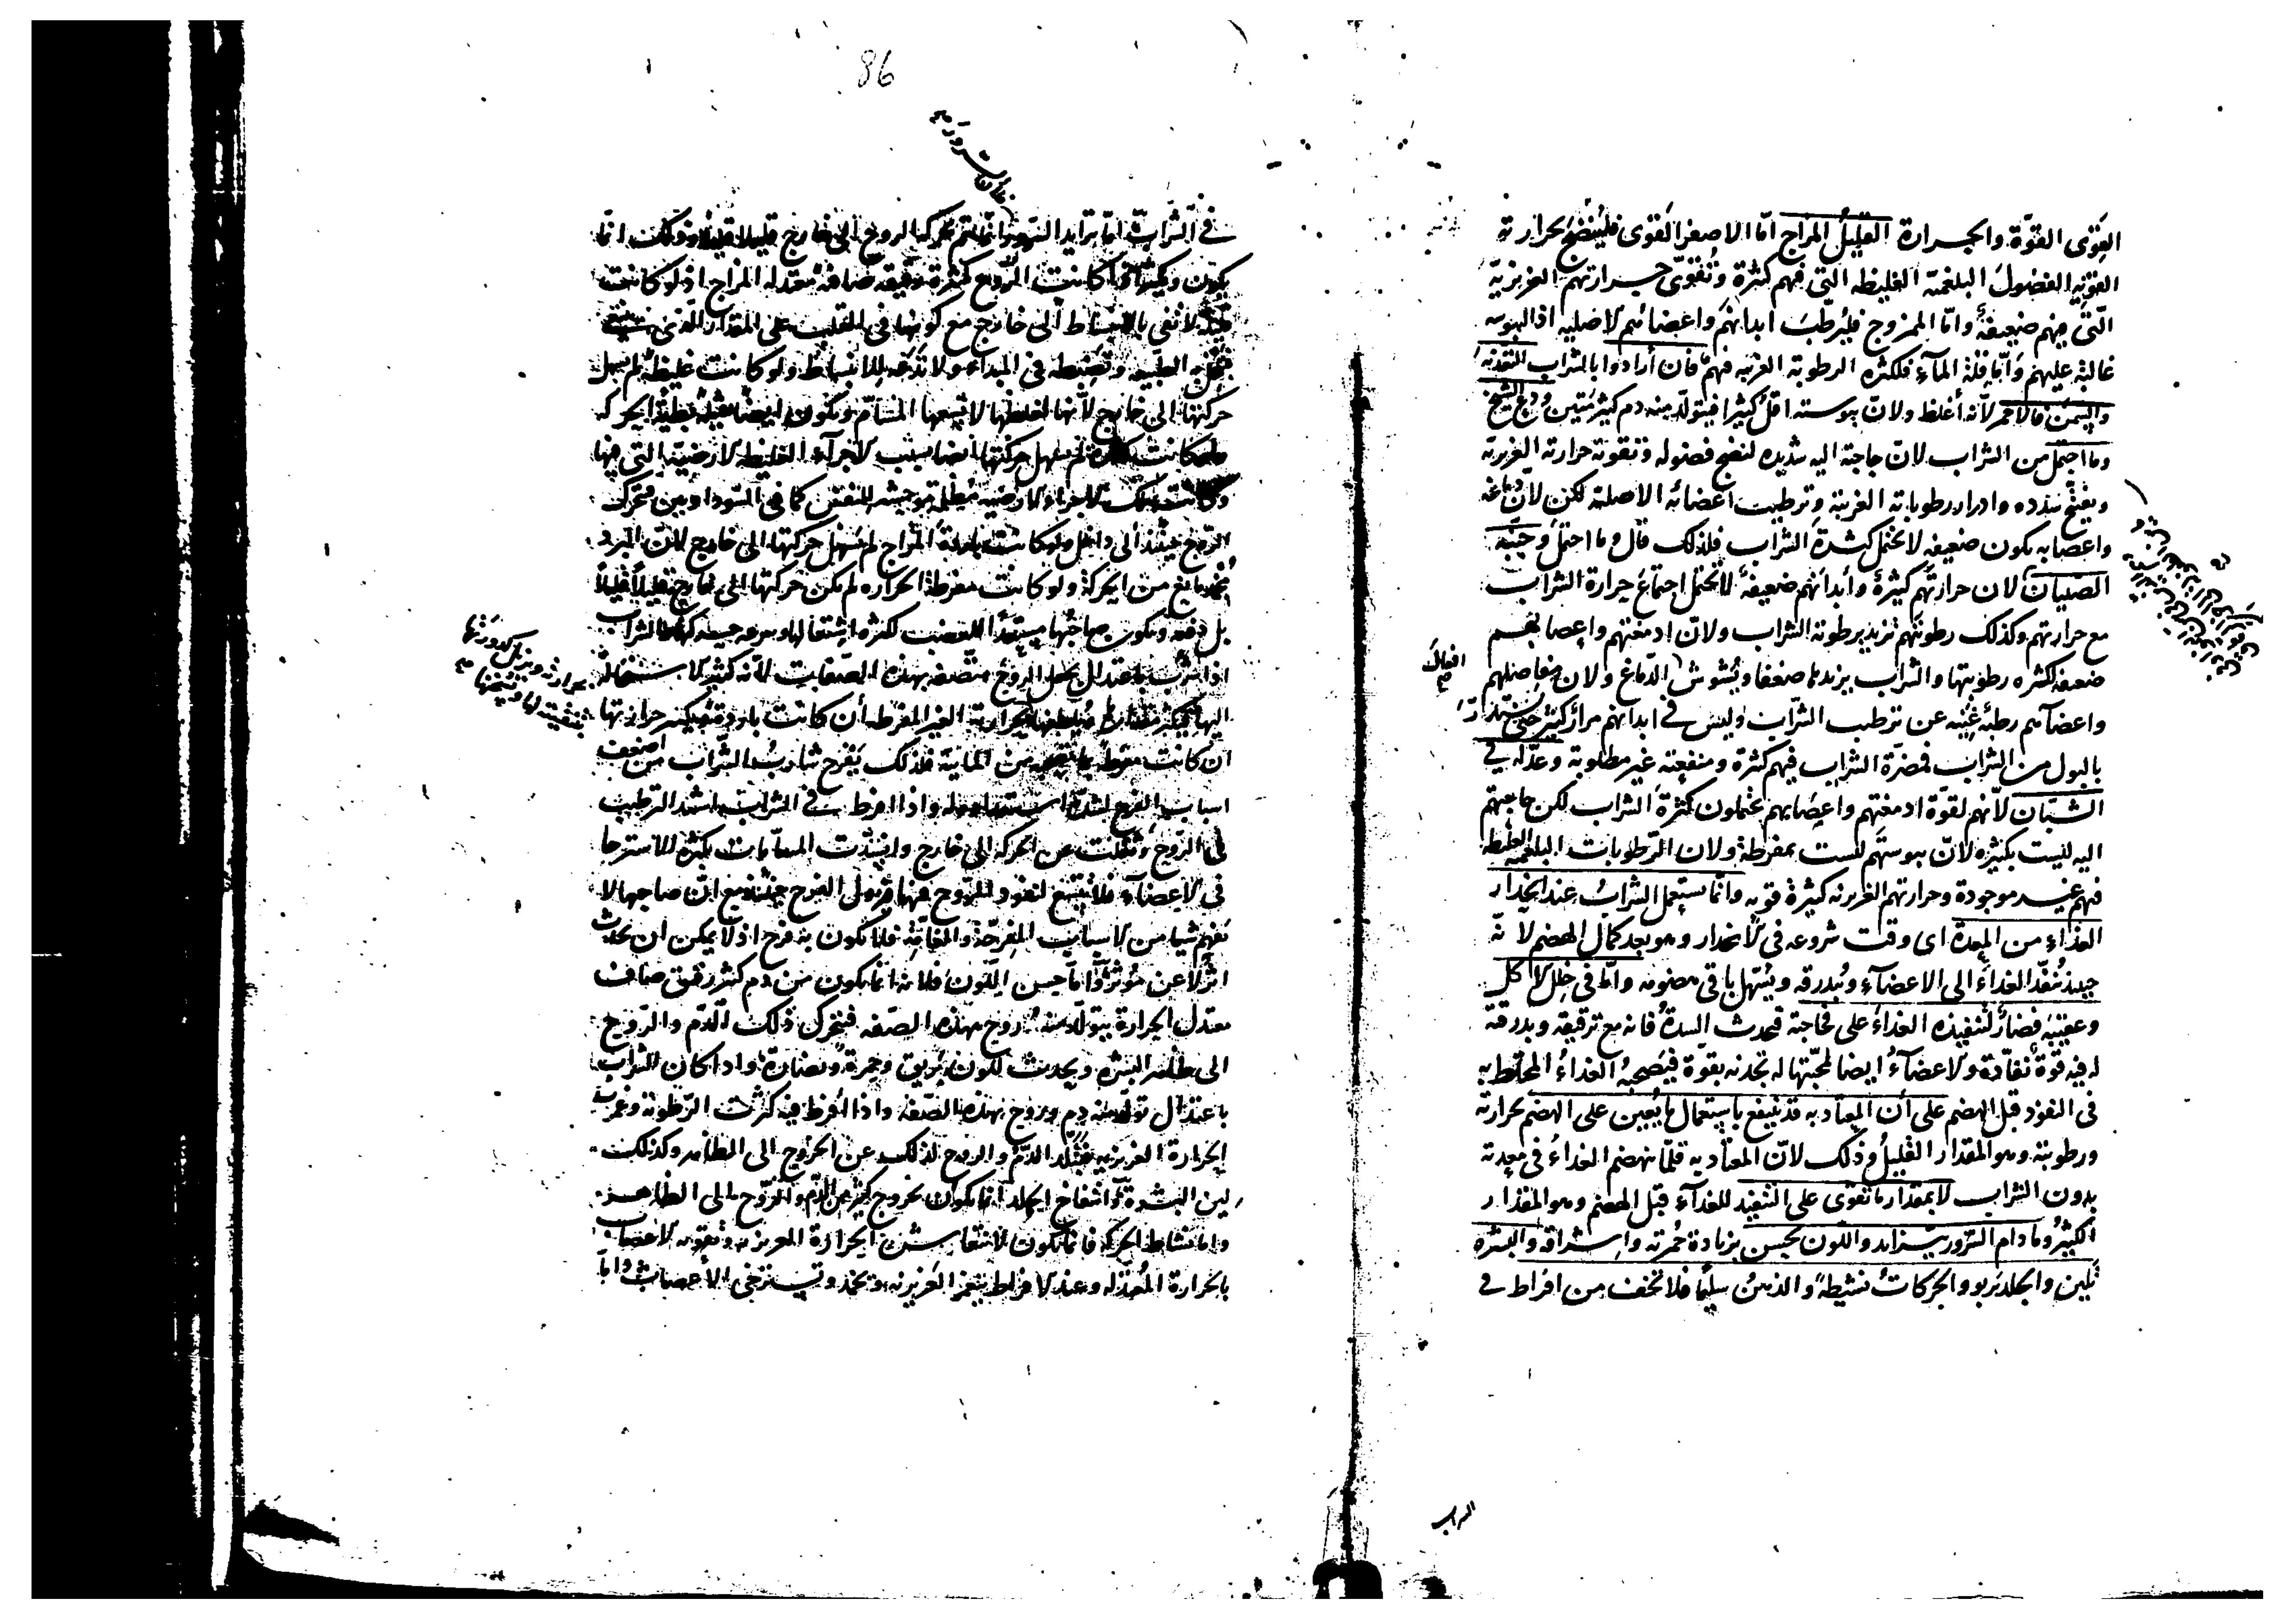 القوى القوة والحرارة القليل المزاج امّا الاصفر القوى فلينضج بحرارته
القوية الفضول البلغمية الغليظه التى فيهم كثرة وتقوّى حرارتهم الغريزيّة
الّتى فيهم ضعيفة وامّا الممزوج فليرطب ابدانهم واعضائهم الاصليه اذ اليبوسه
غالبة عليهم وامّا قلة المآء فلكثره الرطوبة الغريبه فيهم فان أرادوا بالشراب التغذية
والتسمن فالاحمر لانّه أغلظ ولانّ يبوسته اقل كثيرا فيتولّد منه دم كثير متين ودع الشيخ
وما احتمل من الشراب لانّ حاجته اليه شديده لنضج فضوله وتقوية حرارته الغريزية
وتفتيح سدده وادرار رطوباته الغريبة وترطيب أعضائه الاصلية لكن لانّ دماغه
واعصابه يكون ضعيفه لا يحتمل كثرة الشراب فلذلك قال وما احتمل وجنّبه
الصبيان لان حرارتهم كثيرة وأبدانهم ضعيفة لا تحتمل اجتماع حرارة الشراب
مع حرارتهم وكذلك رطوبتهم تزيد برطوبة الشراب ولانّ ادمغتهم واعصابهم
ضعيفه لكثره رطوبتها والشراب يزيدها ضعفا ويشوش الدّماغ ولان مفاصلهم
واعضآءهم رطبة غنيّه عن ترطيب الشراب وليس فى ابدانهم مرار كثير حتى يستدرّ
بالبول من الشراب فمضرّة الشراب فيهم كثرة ومنفعته غير مطلوبة وعدّله فى
الشبّان لانّهم لقوّة ادمغتهم واعصابهم يحتملون كثرة الشراب لكن حاجتهم
اليه ليست بكثيره لانّ يبوستهم ليست بمفرطة ولان الرّطوبات البلغميه الغليظه
فيهم غير موجودة وحرارتهم الغريزيه كثيرة قويه وانّما يستعمل الشراب عند انحدار
الغذاء من المعدة اى وقت شروعه فى الانحدار وهو بعد كمال الهضم لانّه
حينئذ ينفّذ الغذاء الى الاعضآء ويبدرقه ويسهّل باقى هضومه وامّا فى خلل الاكل
وعقيبه فضارّ لتنفيذه الغذاء على فجاجته فيحدث السدة فانه مع ترقيقه وبدرقته
له فيه قوة نفّاذة والاعضآء ايضا لمحبّتها له تجذبه بقوة فيصحبه الغذاء المختلط به
فى النفوذ قبل الهضم على أن المعتاد به قد ينتفع باستعمال ما يعين على الهضم بحرارته
ورطوبته وهو المقدار القليل وذلك لانّ المعتاد به قلّما ينهضم الغذاء فى معدته
بدون الشراب لا بمقدار ما يقوى على التنفيذ للغذآء قبل الهضم وهو المقدار
الكثير وما دام السّرور يتزايد واللّون يحسن بزيادة حمرته واشراقه والبشره
تلين والجلد يربو والحركات نشيطة والذهن سليما فلا تخف من افراط فى
افعال
الشراب
86
فى الشراب امّا تزايد السّرور الى خارج قليلا قليلا وذلك انّما
يكون اذا كانت الرّوح كثيرة رقيقه صافية معتدله المزاج اذ لو كانت
لا تفى بالانبساط الى خارج مع كونها فى القلب على المقدار الّذى
الطبيعه وتضبطه فى المبدا ولا تدعه للانبساط ولو كانت غليظة لم يسهل
حركتها الى خارج لانّها لغلظها لا تسعها المسامّ وتكون ايضا ثقيلة بطيئة الحركه
ولو كانت كدرة لم يسهل حركتها ايضا بسبب الاجزآء الغليظه الارضيّة التى فيها
وكانت تلك الاجزاء الارضيه مظلمة موحشه للنفس كما فى السّوداويين فتحرك
الرّوح حينئذ الى داخل ولو كانت باردة المزاج لم يسهل حركتها الى خارج لانّ البرد
مخمد مانع من الحركة ولو كانت مفرطة الحراره لم يكن حركتها الى خارج قليلا قليلا
بل دفعه ويكون صاحبها مستعدا للغضب لكثره اشتعالها وسرعه حركتها والشراب
اذا شرب باعتدال يجعل الروح متّصفه بهذه الصّفات لانّه كثير الاستحاله
اليها فيكثر مقدارها بحرارته الغير المفرطه أن كانت باردة ويكسر حرارتها
ان كانت مفرطة بما فيه من المائيّة فلذلك يفرح شارب الشراب من اضعف
اسباب الفرح لشدّة استعداده له واذا افرط فى الشراب اشتد الترطيب
فى الرّوح وثقلت عن الحركه الى خارج وانسدّت المسامّات بكثرة الاسترخا
فى الاعضآء فلا يتسع لنفوذ الرّوح فيها فيزول الفرح حينئذ مع انّ صاحبها لا
يفهم شيا من الاسباب المفرحة والمغامّه فلا يكون به فرح اذ لا يمكن ان يحدث
اثر لا عن مؤثّر وامّا حسن اللّون فلانه انما يكون من دم كثير رقيق صاف
معتدل الحرارة يتولّد منه روح بهذه الصّفه فيتحرك ذلك الدّم والرّوح
الى ظاهر البشره ويحدث للّون بريق وحمرة ونضارة واذا كان الشراب
باعتدال تولّد منه دم وروح بهذه الصّفة واذا أفرط فيه كثرت الرّطوبة وغمرت
الحرارة الغريزيه فتبلّد الدّم والروح لذلك عن الخروج الى الظاهر وكذلك
لين البشرة وانتفاخ الجلد انما يكون بخروج كثير من الدّم والرّوح الى الظاهر
وامّا نشاط الحركه فانما يكون لانتعاش الحرارة الغريزيه وتقويه الاعصاب
بالحرارة المعتدله وعند الافراط ينغمر الغريزيه وتخمد وتسترخى الأعصاب وامّا
بحرارته ويزيل كدورتها